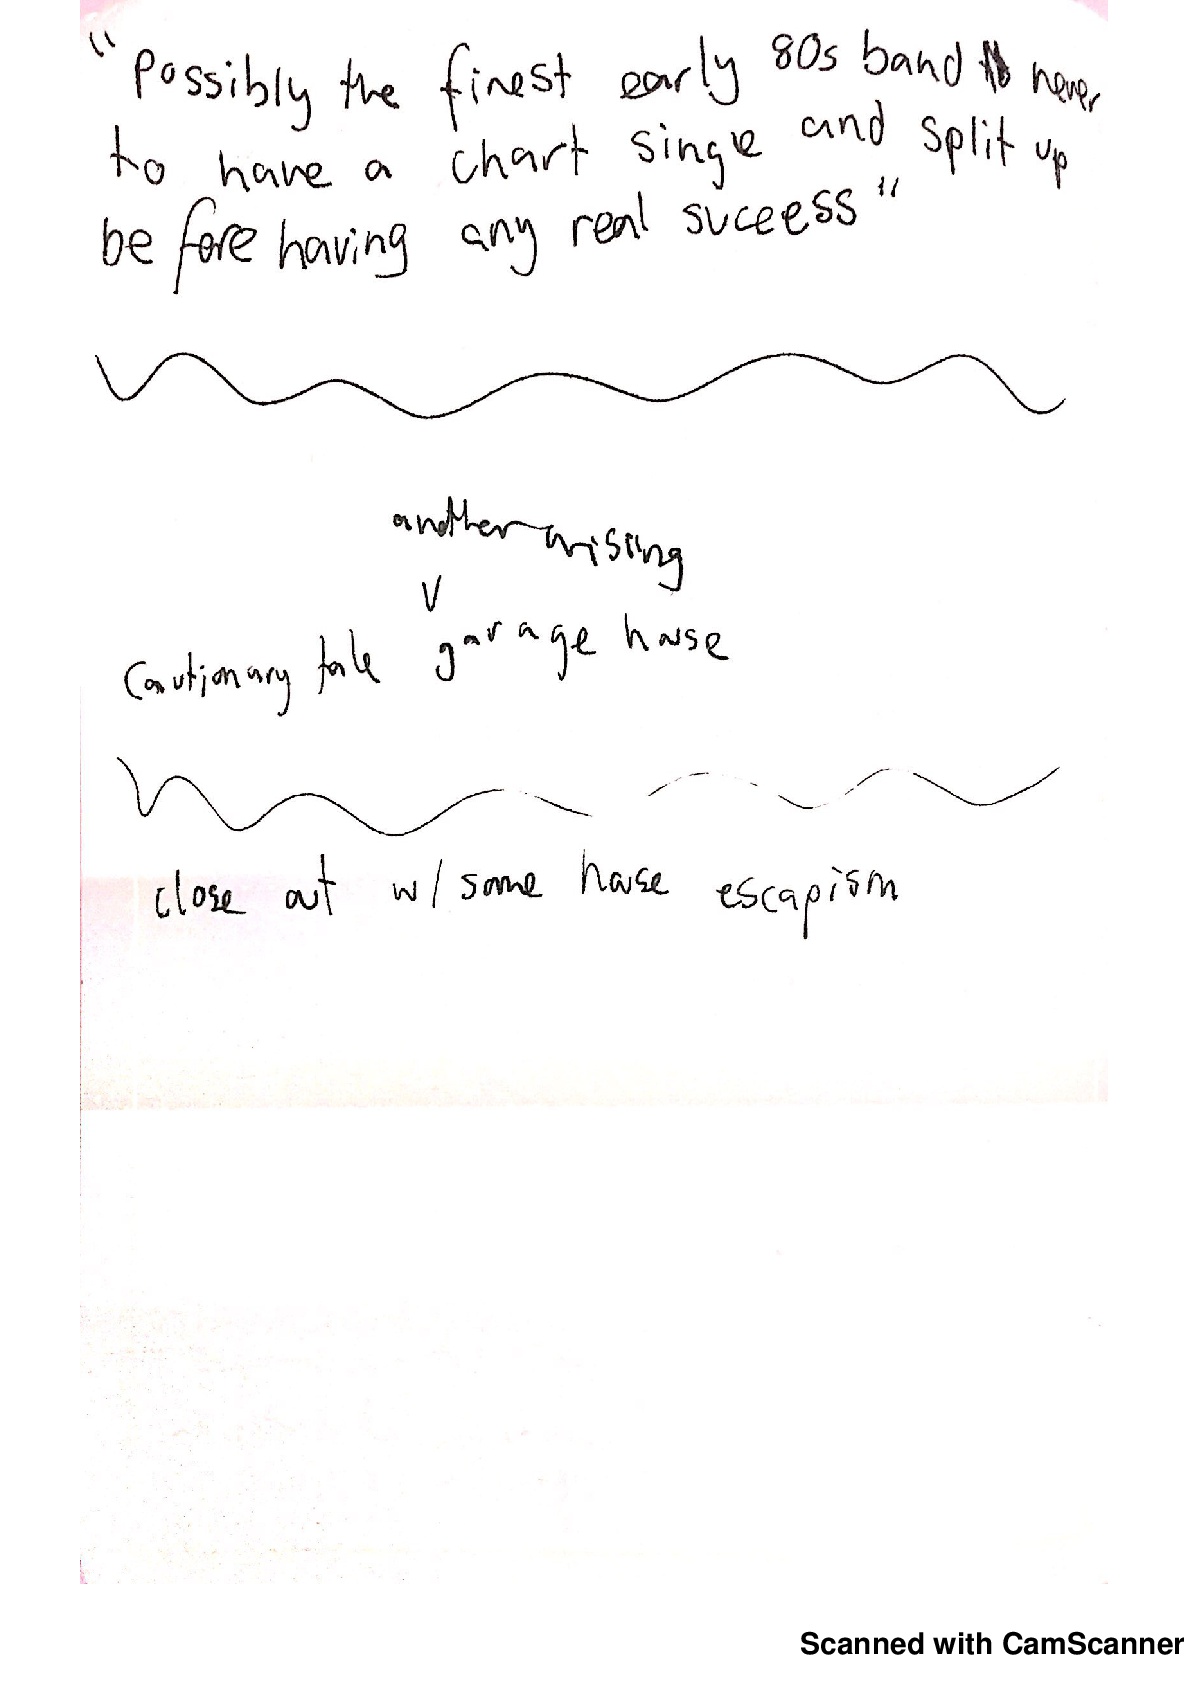 "Possibly the finest early 80s band never
to have a chart single and split up
before having any real success"
another arising
V
Cautionary tale garage house
close out w/ some house escapism
Scanned with CamScanner